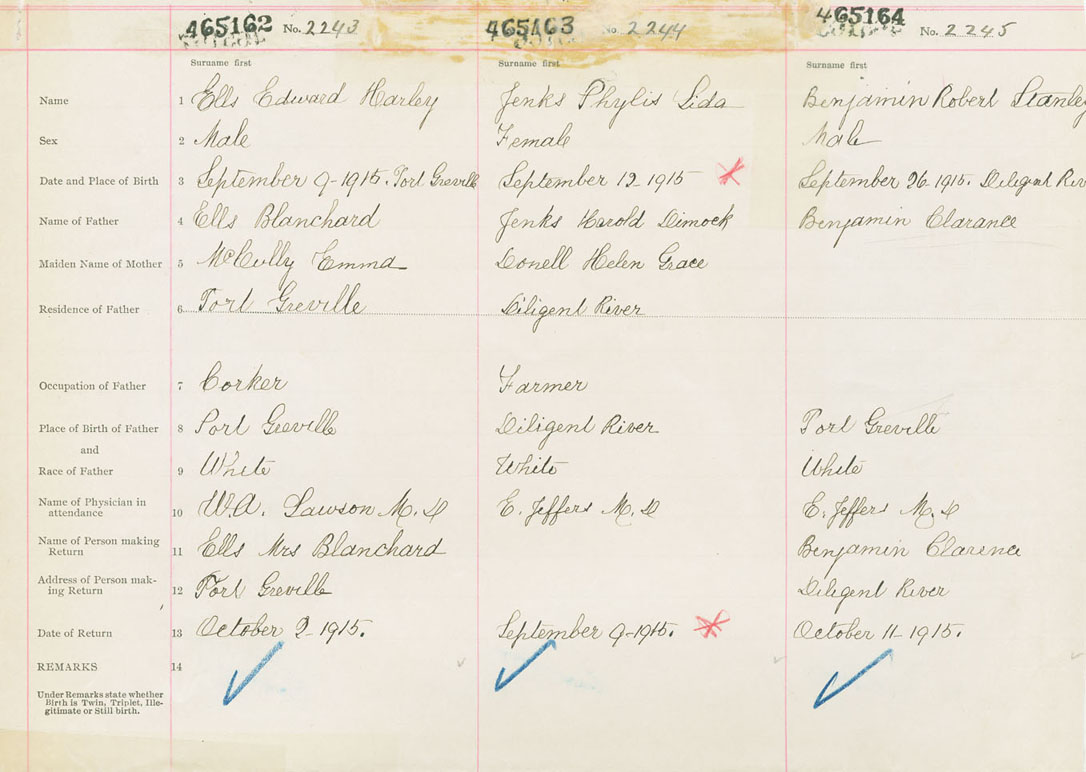 465162 No. 2243 465163 No. 2244 465164 No. 2245
Surname first Surname first Surname first
Name 1 Ells Edward Harley Jenks Phylis Lida Benjamin Robert Stanley
Sex 2 Male Female Male
Date and Place of Birth 3 September 9-1915. Port Greville September 12 1915 September 26 1915. Diligent Riv
Name of Father 4 Ells Blanchard Jenks Harold Dimock Benjamin Clarance
Maiden Name of Mother 5 McCully Emma Donell Helen Grace
Residence of Father 6 Port Greville Diligent River
Occupation of Father 7 Corker Farmer
Place of Birth of Father 8 Port Greville Diligent River Port Greville
and
Race of Father 9 White White White
Name of Physician in
attendance 10 W.A. Lawson M. D E. Jeffers M. D E. Jeffers M. D
Name of Person making
Return 11 Ells Mrs Blanchard Benjamin Clarence
Address of Person mak-
ing Return 12 Port Greville Diligent River
Date of Return 13 October 2-1915. September 9-1915. October 11-1915.
REMARKS 14
Under Remarks state whether
Birth is Twin, Triplet, Ille-
gitimate or Still birth.